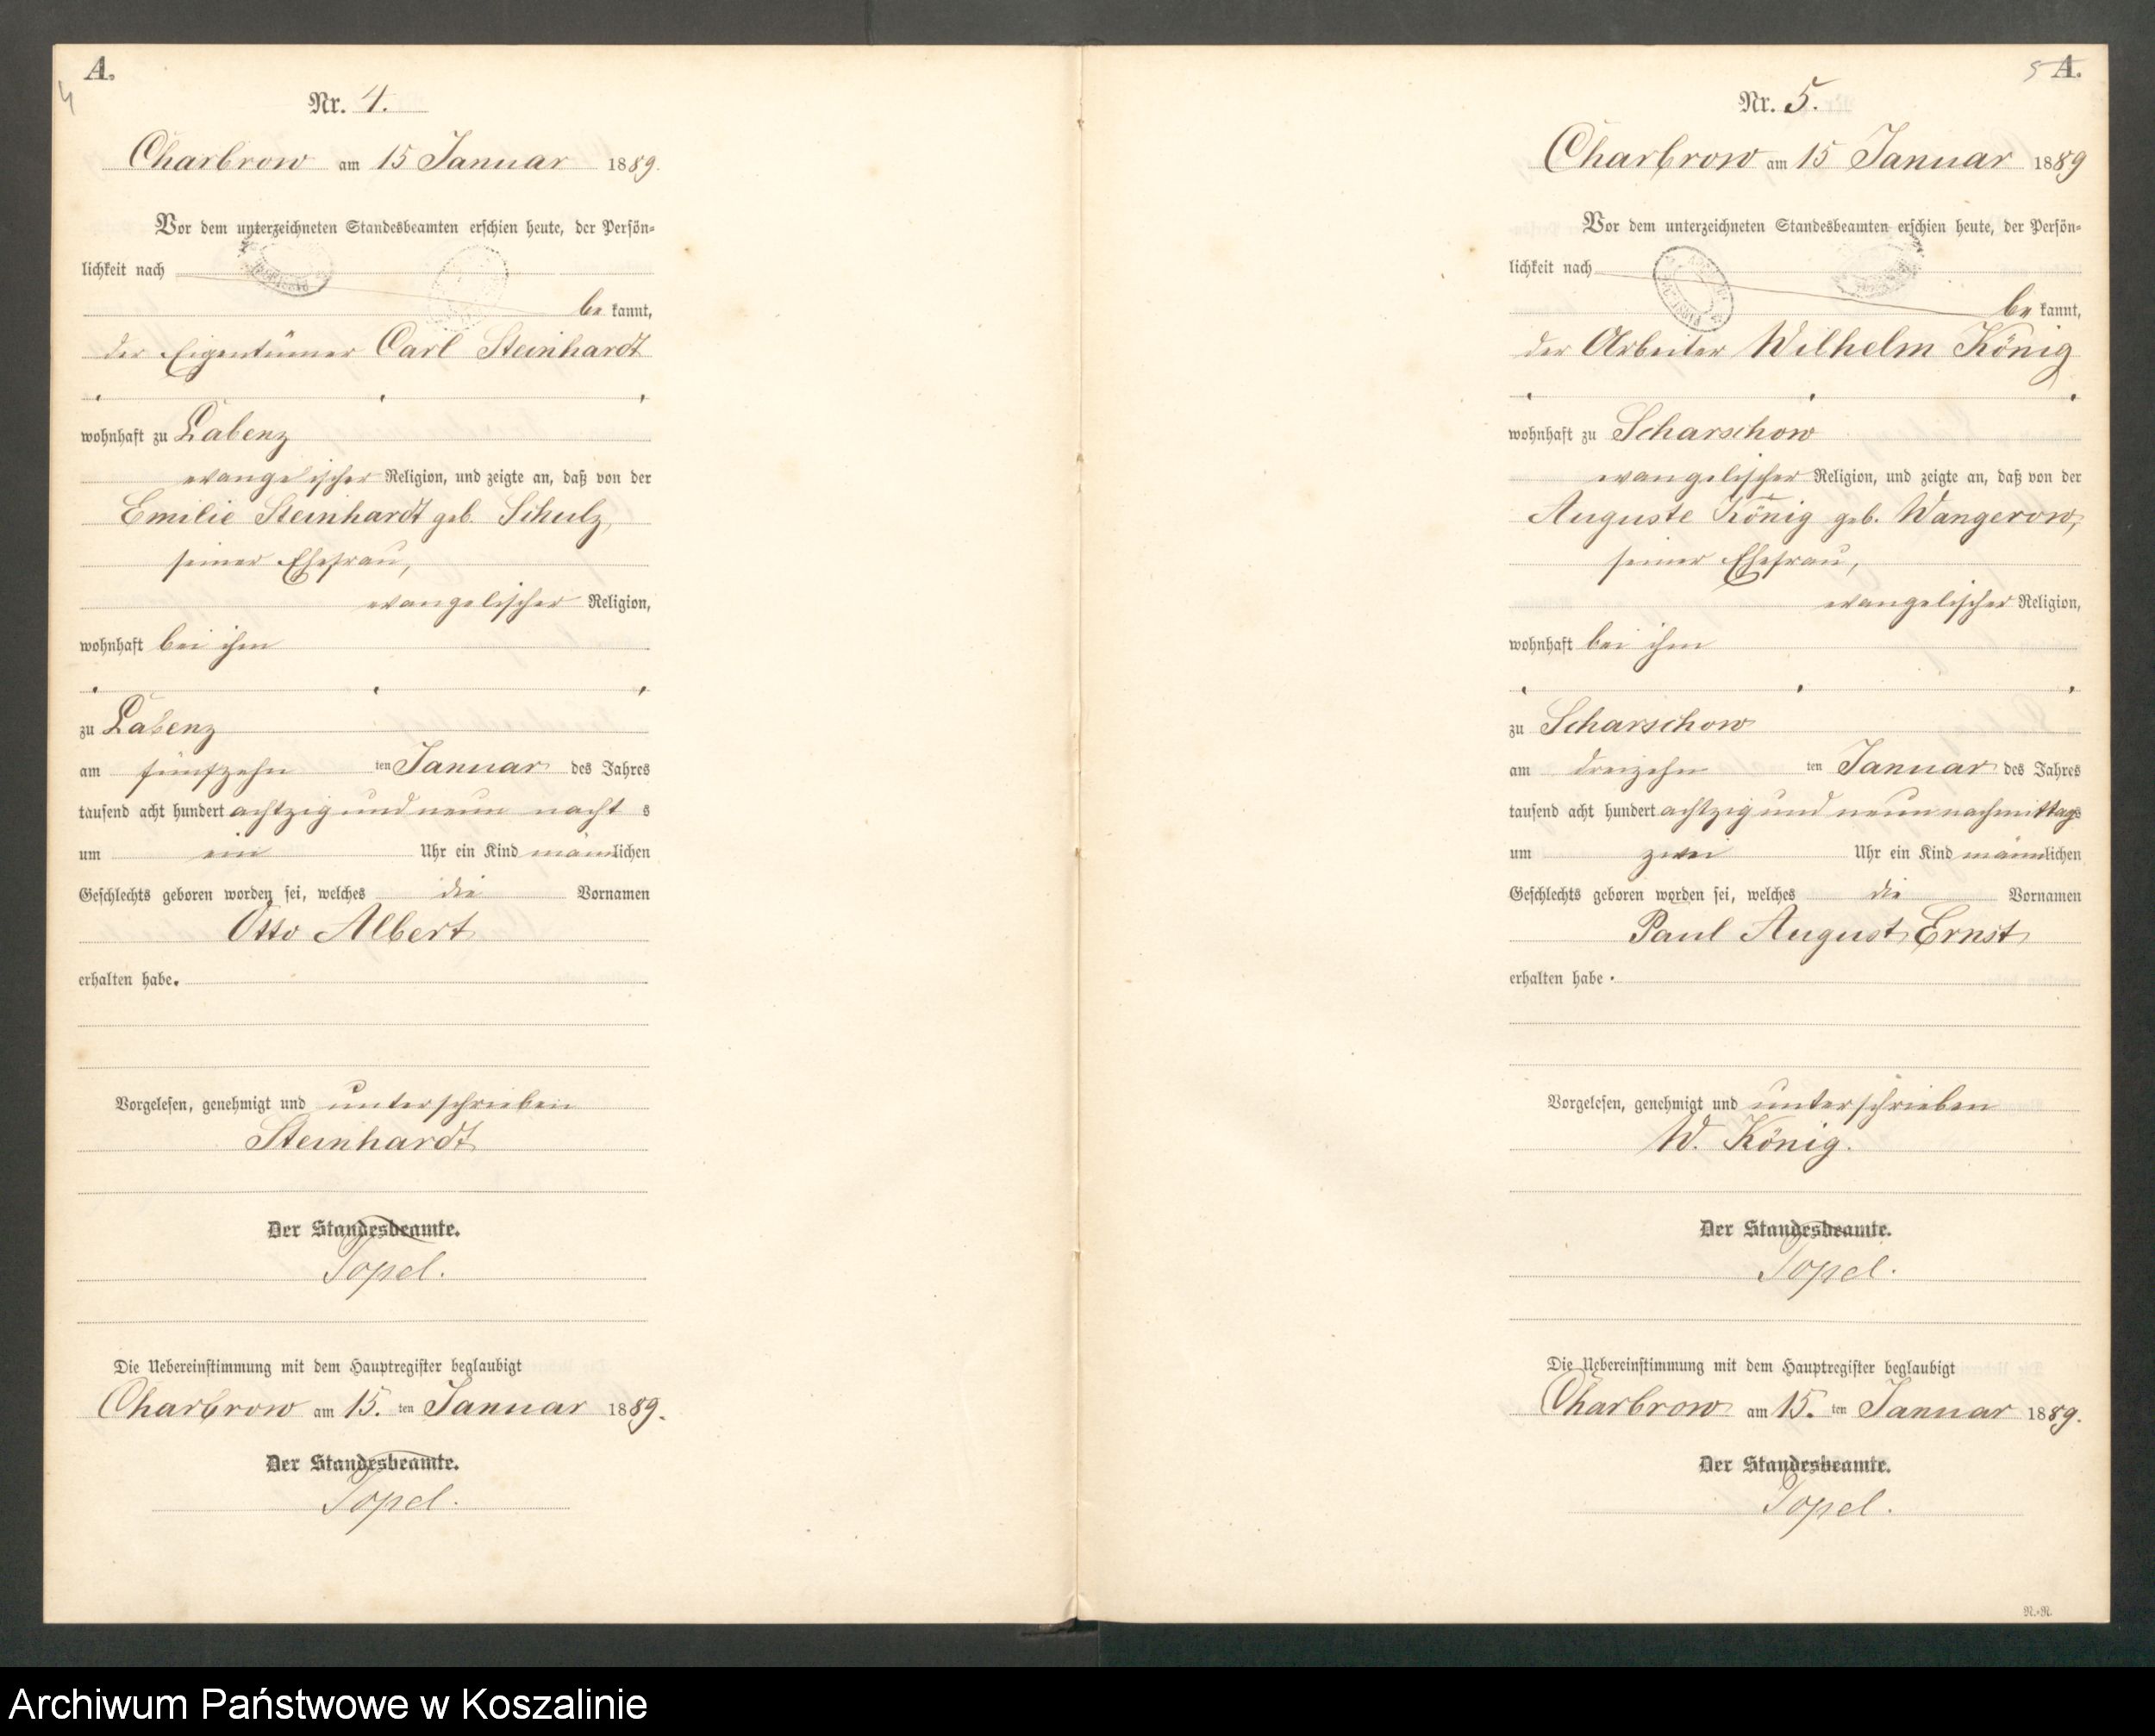 A.
4
Nr. 4.
Charbrow am 15 Januar 1889.
Vor dem unterzeichneten Standesbeamten erschien heute, der Persön-
lichkeit nach
be kannt,
der Eigentümer Carl Steinhardt
wohnhaft zu Labenz
evangelischer Religion, und zeigte an, daß von der
Emilie Steinhardt geb. Schulz,
seiner Ehefrau,
evangelischer Religion,
wohnhaft bei ihm
zu Labenz
am fünfzehn ten Januar des Jahres
tausend acht hundert achtzig und neun nacht s
um ein Uhr ein Kind männlichen
Geschlechts geboren worden sei, welches die Vornamen
Otto Albert
erhalten habe.
Vorgelesen, genehmigt und unterschrieben
Steinhardt
Der Standesbeamte.
Topel.
Die Uebereinstimmung mit dem Hauptregister beglaubigt
Charbrow am 15. ten Januar 1889.
Der Standesbeamte.
Topel.
5 A.
Nr. 5.
Charbrow am 15 Januar 1889
Vor dem unterzeichneten Standesbeamten erschien heute, der Persön-
lichkeit nach
be kannt,
der Arbeiter Wilhelm König
wohnhaft zu Scharschow
evangelischer Religion, und zeigte an, daß von der
Auguste König geb. Wangerow,
seiner Ehefrau,
evangelischer Religion,
wohnhaft bei ihm
zu Scharschow
am dreizehn ten Januar des Jahres
tausend acht hundert achtzig und neun nachmittags
um zwei Uhr ein Kind männlichen
Geschlechts geboren worden sei, welches die Vornamen
Paul August Ernst
erhalten habe.
Vorgelesen, genehmigt und unterschrieben
W. König.
Der Standesbeamte.
Topel.
Die Uebereinstimmung mit dem Hauptregister beglaubigt
Charbrow am 15. ten Januar 1889.
Der Standesbeamte.
Topel.
N.-N.
Archiwum Państwowe w Koszalinie